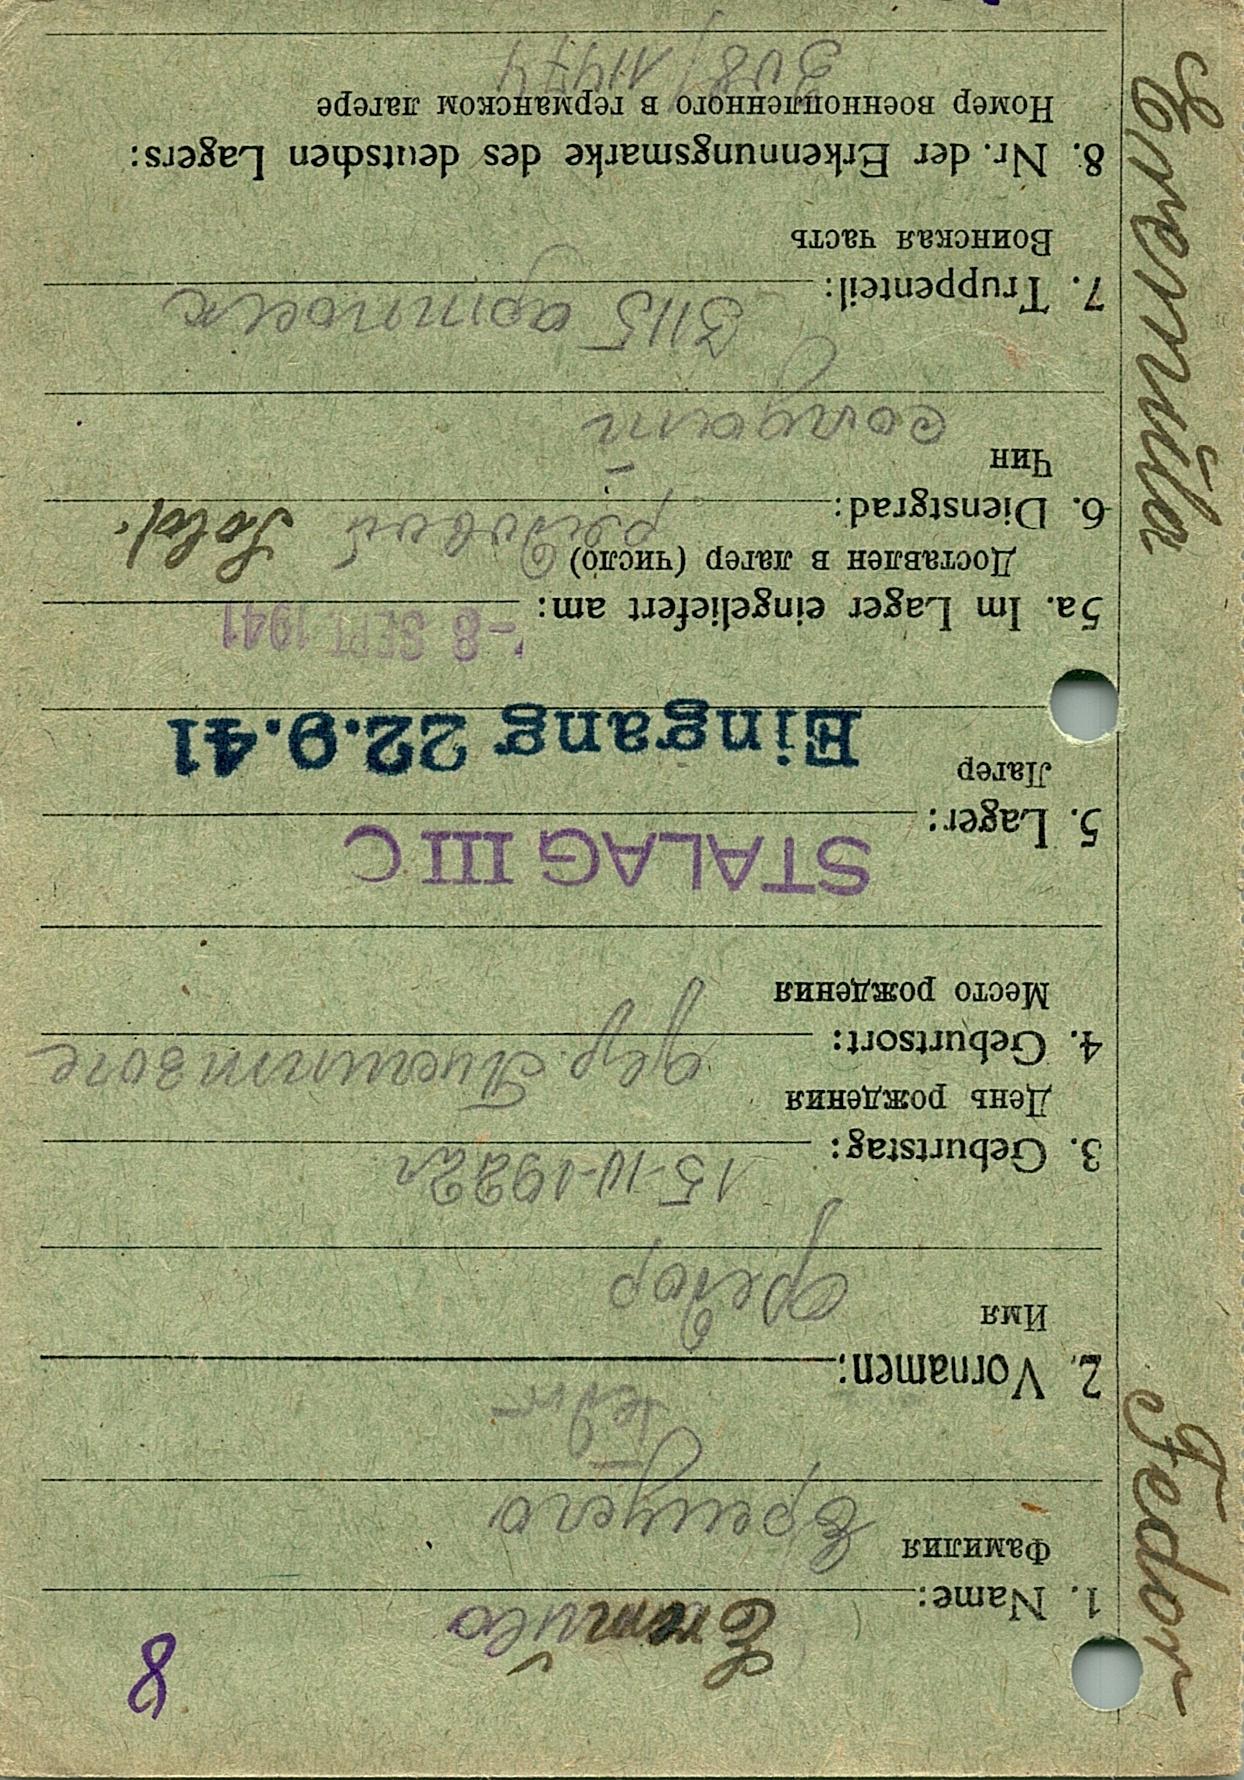 8
1. Name:
Фамилия
2. Vornamen:
Имя
федор
3. Geburtstag: 15-IV-1922г
День рождения
4. Geburtsort: дер.
Место рождения
STALAG III C
5. Lager:
Лагер
Eingang 22.9.41
-8. SEPT. 1941
5a. Im Lager eingeliefert am:
Доставлен в лагер (число)
6. Dienstgrad: рядовой Sold.
Чин
солдат
7. Truppenteil: 3115 артполк
Воинская часть
8. Nr. der Erkennungsmarke des deutschen Lagers:
Номер военнопленного в германском лагере
308/11474
Fedor